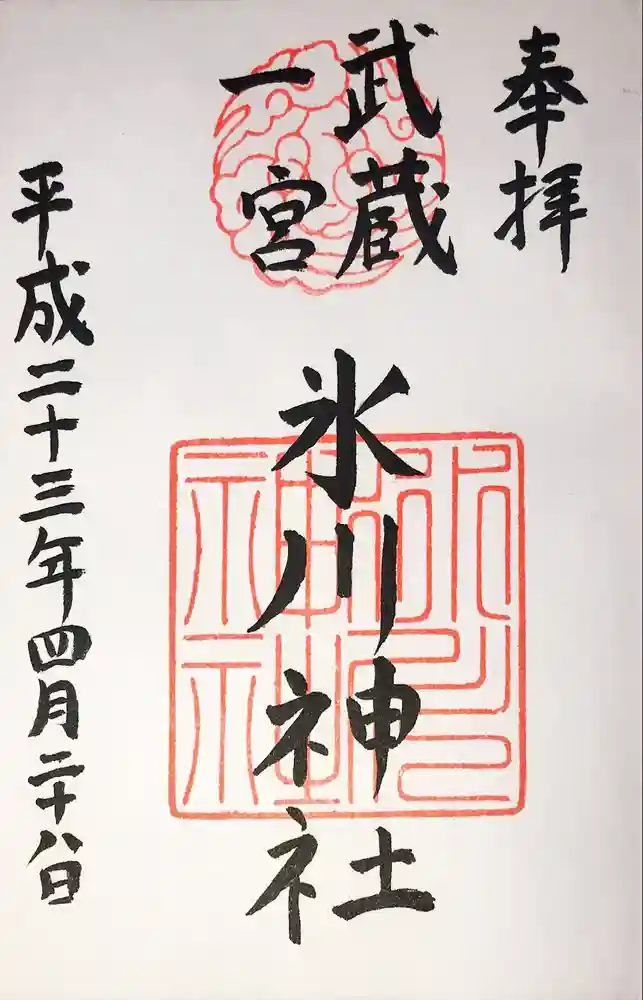 奉拝
武蔵
一宮
氷川神社
平成二十三年四月二十八日